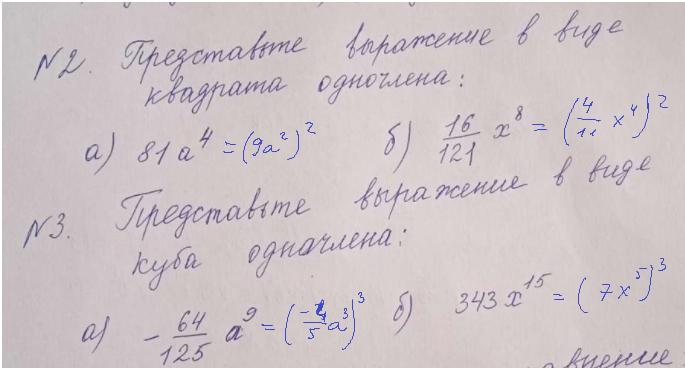 №2. Представьте выражение в виде
квадрата одночлена:
а) 81a⁴ = (9a²)² б) 16/121 x⁸ = (4/11 x⁴)²
№3. Представьте выражение в виде
куба одначлена:
а) -64/125 a⁹ = (-4/5 a³)³ б) 343x¹⁵ = (7x⁵)³